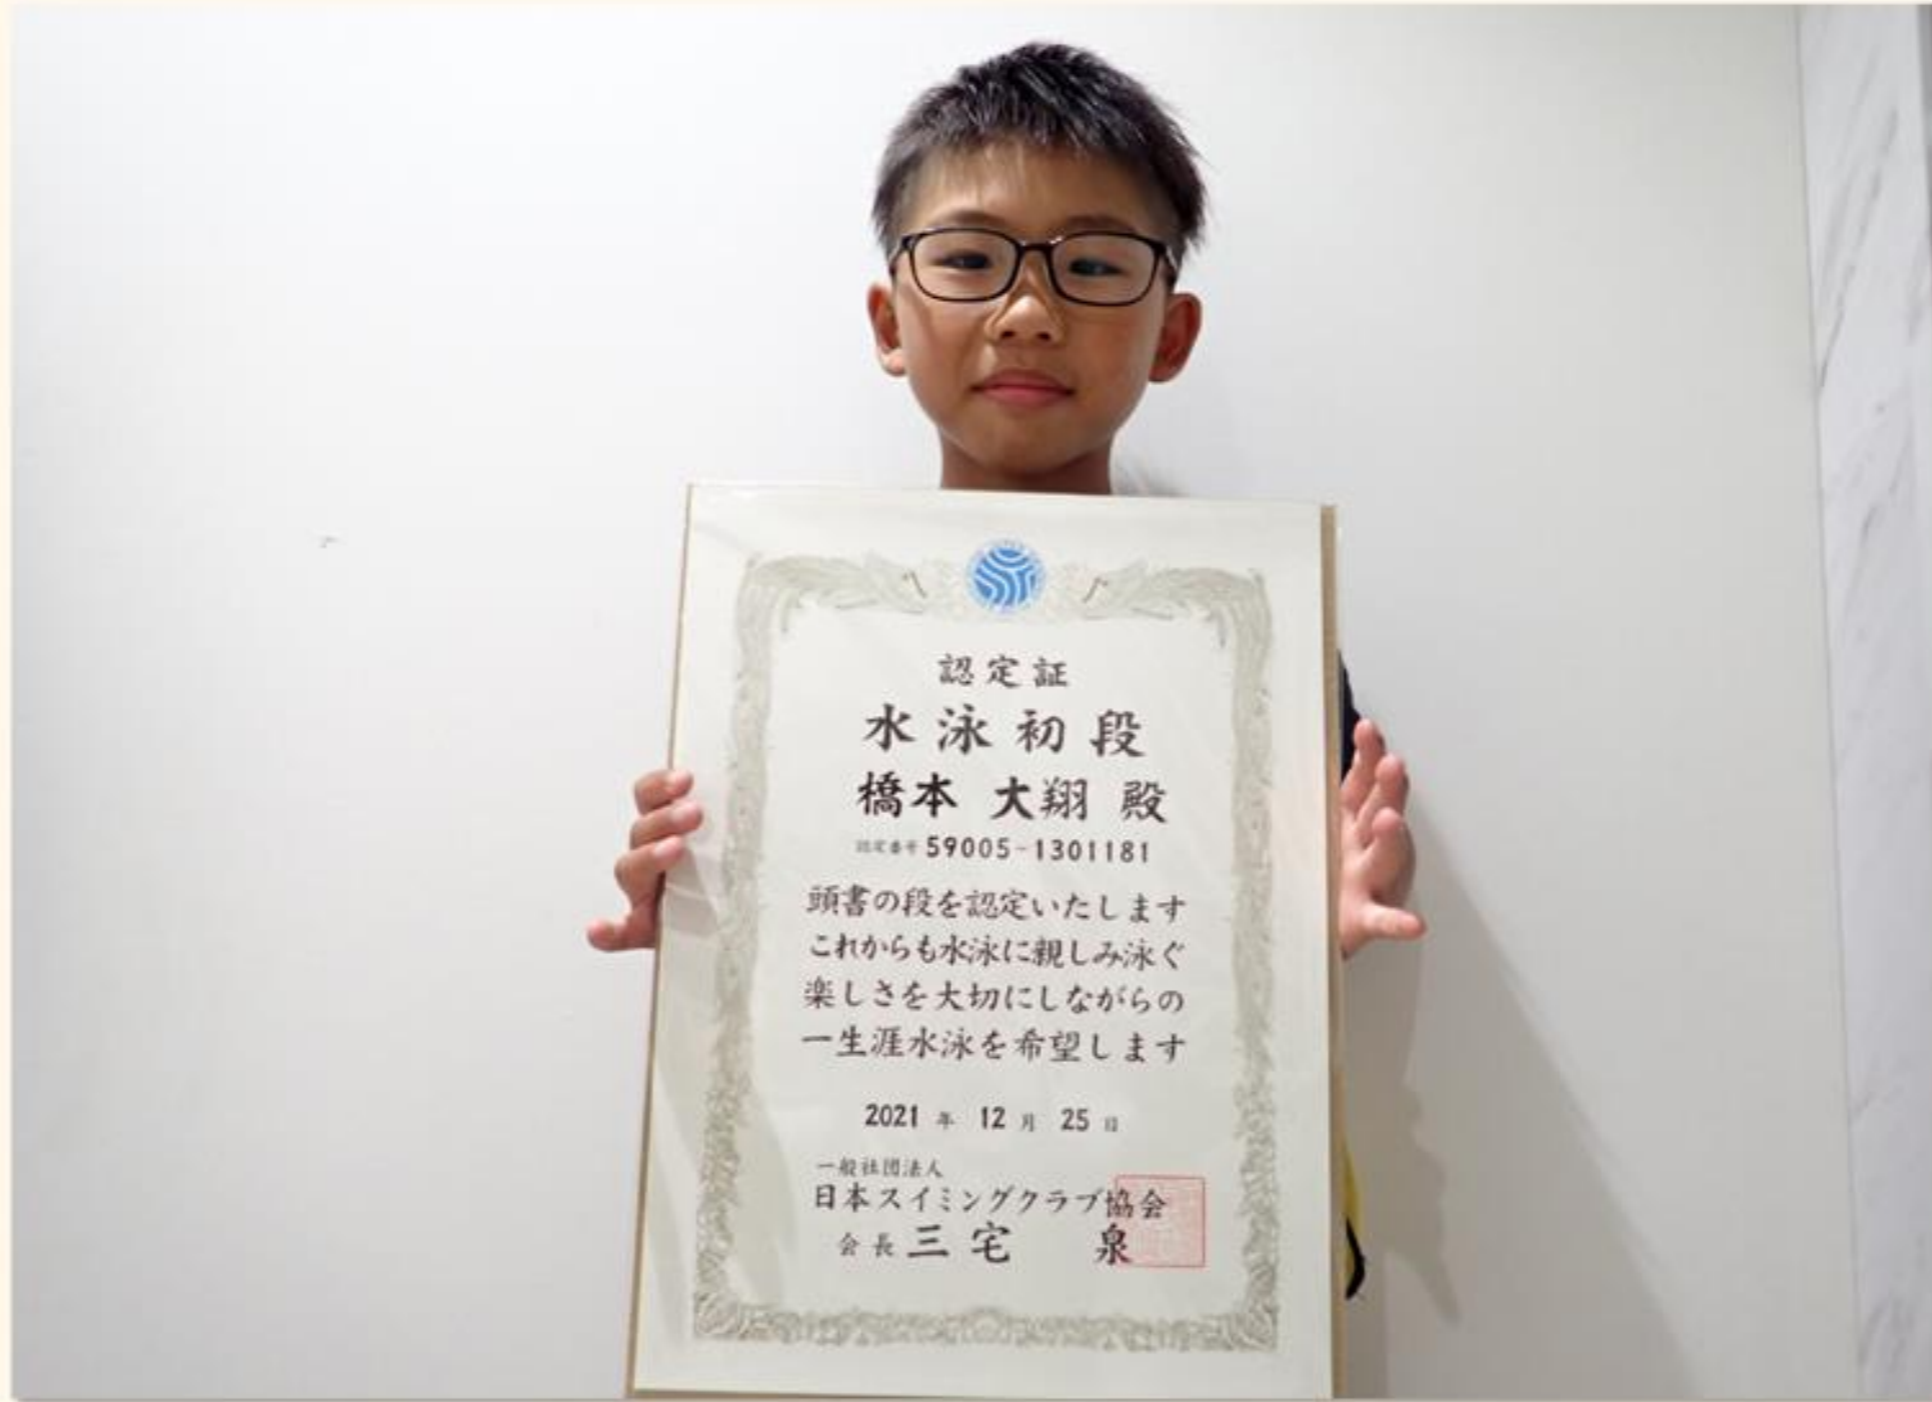 認定証
水泳初段
橋本 大翔 殿
認定番号 59005-1301181
頭書の段を認定いたします
これからも水泳に親しみ泳ぐ
楽しさを大切にしながらの
一生涯水泳を希望します
2021 年 12 月 25 日
一般社団法人
日本スイミングクラブ協会
会長 三宅 泉